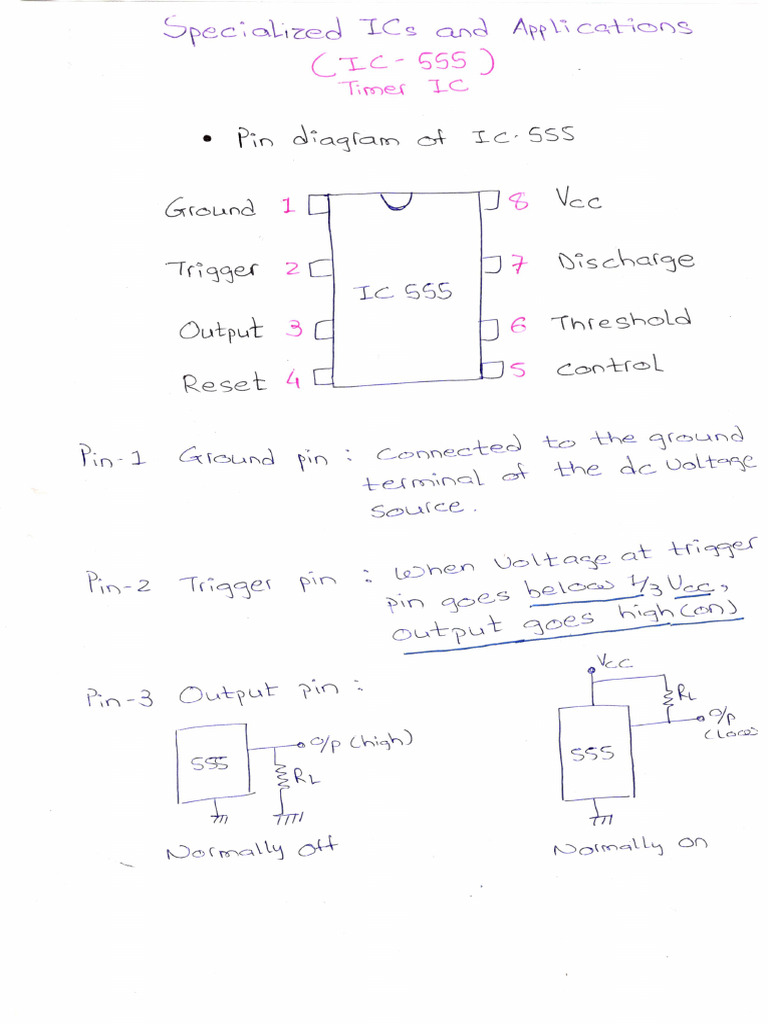 Specialized ICs and Applications
(IC-555)
Timer IC
• Pin diagram of IC-555
Ground 1 8 Vcc
Trigger 2 7 Discharge
IC 555
Output 3 6 Threshold
Reset 4 5 Control
Pin-1 Ground pin : Connected to the ground
terminal of the dc voltage
source.
Pin-2 Trigger pin : When voltage at trigger
pin goes below 1/3 Vcc,
output goes high(on)
Pin-3 Output pin :
Vcc
RL
555 o/p (high) 555 o/p
(Low)
RL
Normally off Normally on